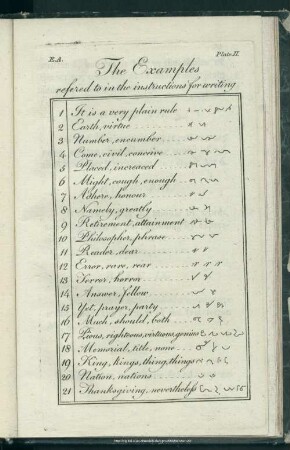 E.A. Plate II.
The Examples
refered to in the instructions for writing
1 It is a very plain rule
2 Earth, virtue
3 Number, encumber
4 Come, civil, conceive
5 Placed, increaced
6 Might, cough, enough
7 Ashore, honour
8 Namely, greatly
9 Retirement, attainment
10 Philosopher, phrase
11 Reader, dear
12 Error, rare, rear
13 Terror, horror
14 Answer, fellow
15 Yet, prayer, party
16 Much, should, both
17 Pious, righteous, virtuous, genius
18 Memorial, title, none
19 King, kings, thing, things
20 Nation, nations
21 Thanksgiving, nevertheless